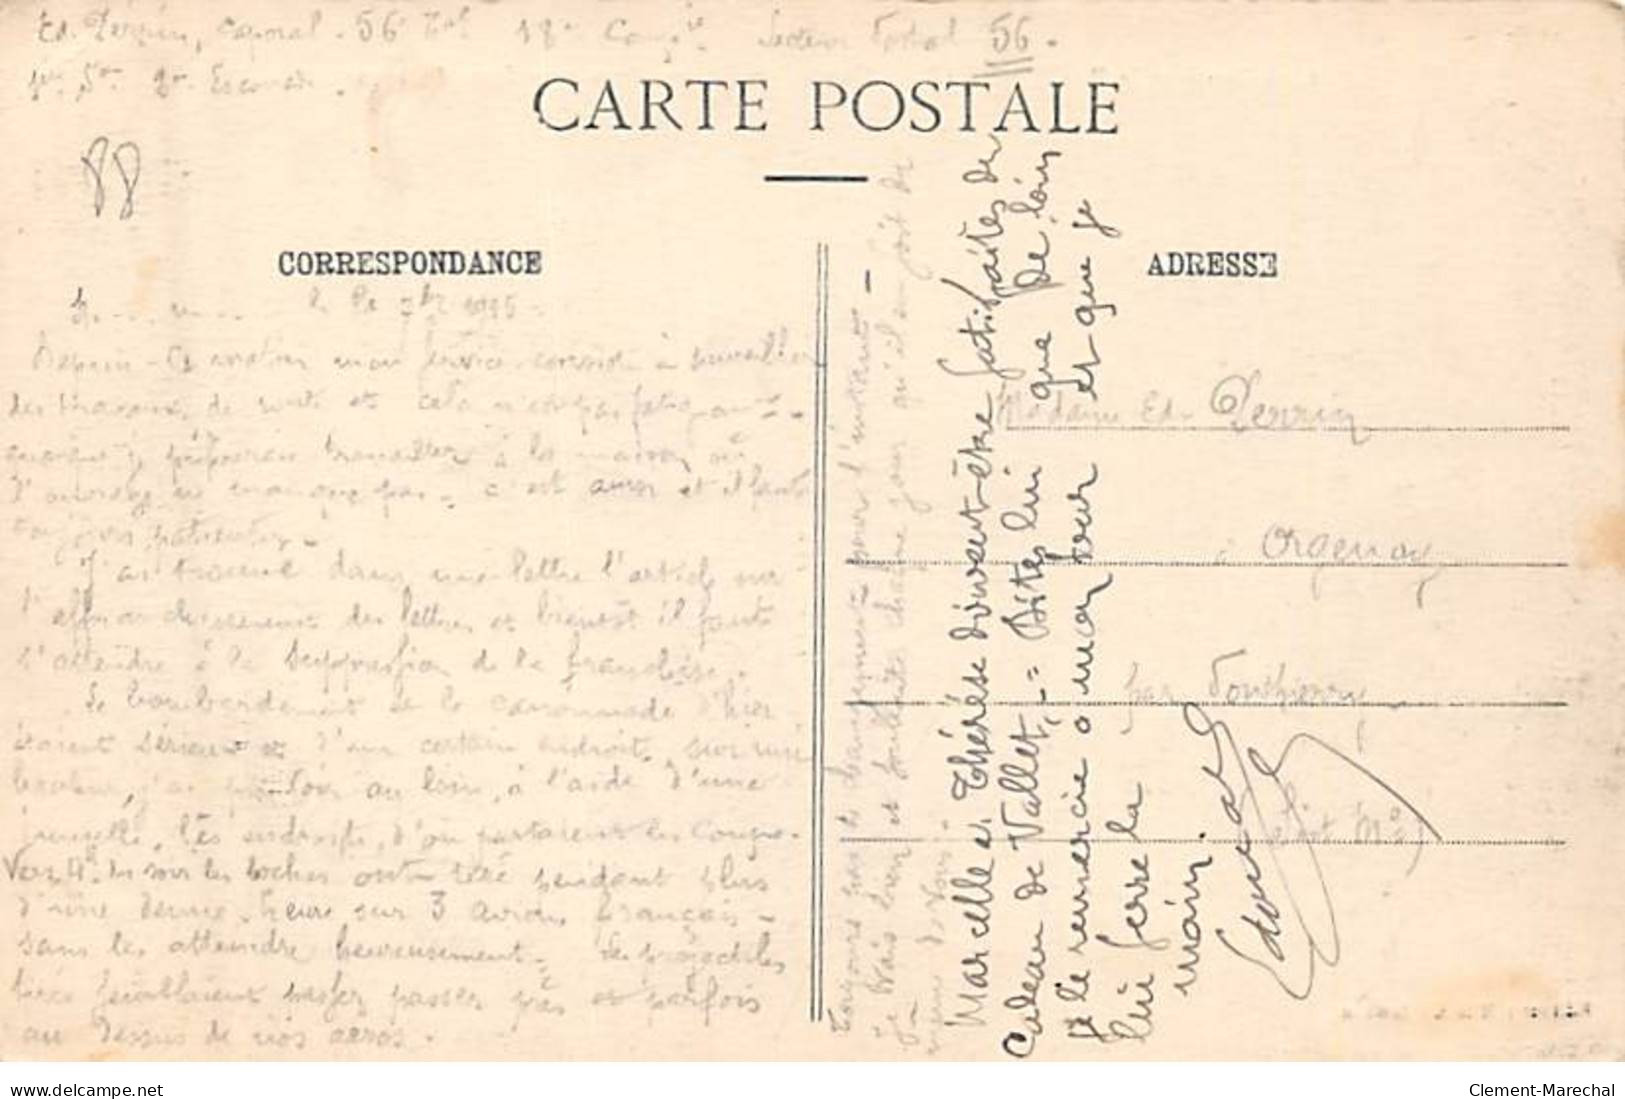 Ed. Perrin, caporal - 56e 18e Secteur Postal 56 -
CARTE POSTALE
CORRESPONDANCE
ADRESSE
le
mon service consiste à surveiller
des travaux de route et cela n'est pas
travailler à la maison où
l'ouvrage ne manque pas - c'est ainsi et il faut
toujours patienter -
J'ai trouvé dans une lettre l'article sur
l'affranchissement des lettres et bientôt il faut
s'attendre à la suppression de la franchise.
Le bombardement et la canonnade d'hier
étaient sérieux et d'un certain endroit, sur une
hauteur, j'ai pu voir au loin, à l'aide d'une
jumelle, les endroits d'où partaient les coups -
Vers 4h. du soir les boches ont tiré pendant plus
d'une demie-heure sur 3 avions français -
sans les atteindre heureusement - Les projectiles
passer près et parfois
au dessus de nos
Toujours pas de changement pour l'instant -
Je vais bien et souhaite chaque jour qu'il en soit de
même de vous -
Marcelle et Thérèse doivent être satisfaites du
Cadeau de Vallet - = Dites lui que de loin
je le remercie à mon tour et que je
lui serre la
main.
Edouard
Madame Ed. Perrin
à Orgenoy
par Ponthierry
S. et M.
www.delcampe.net
Clement-Marechal